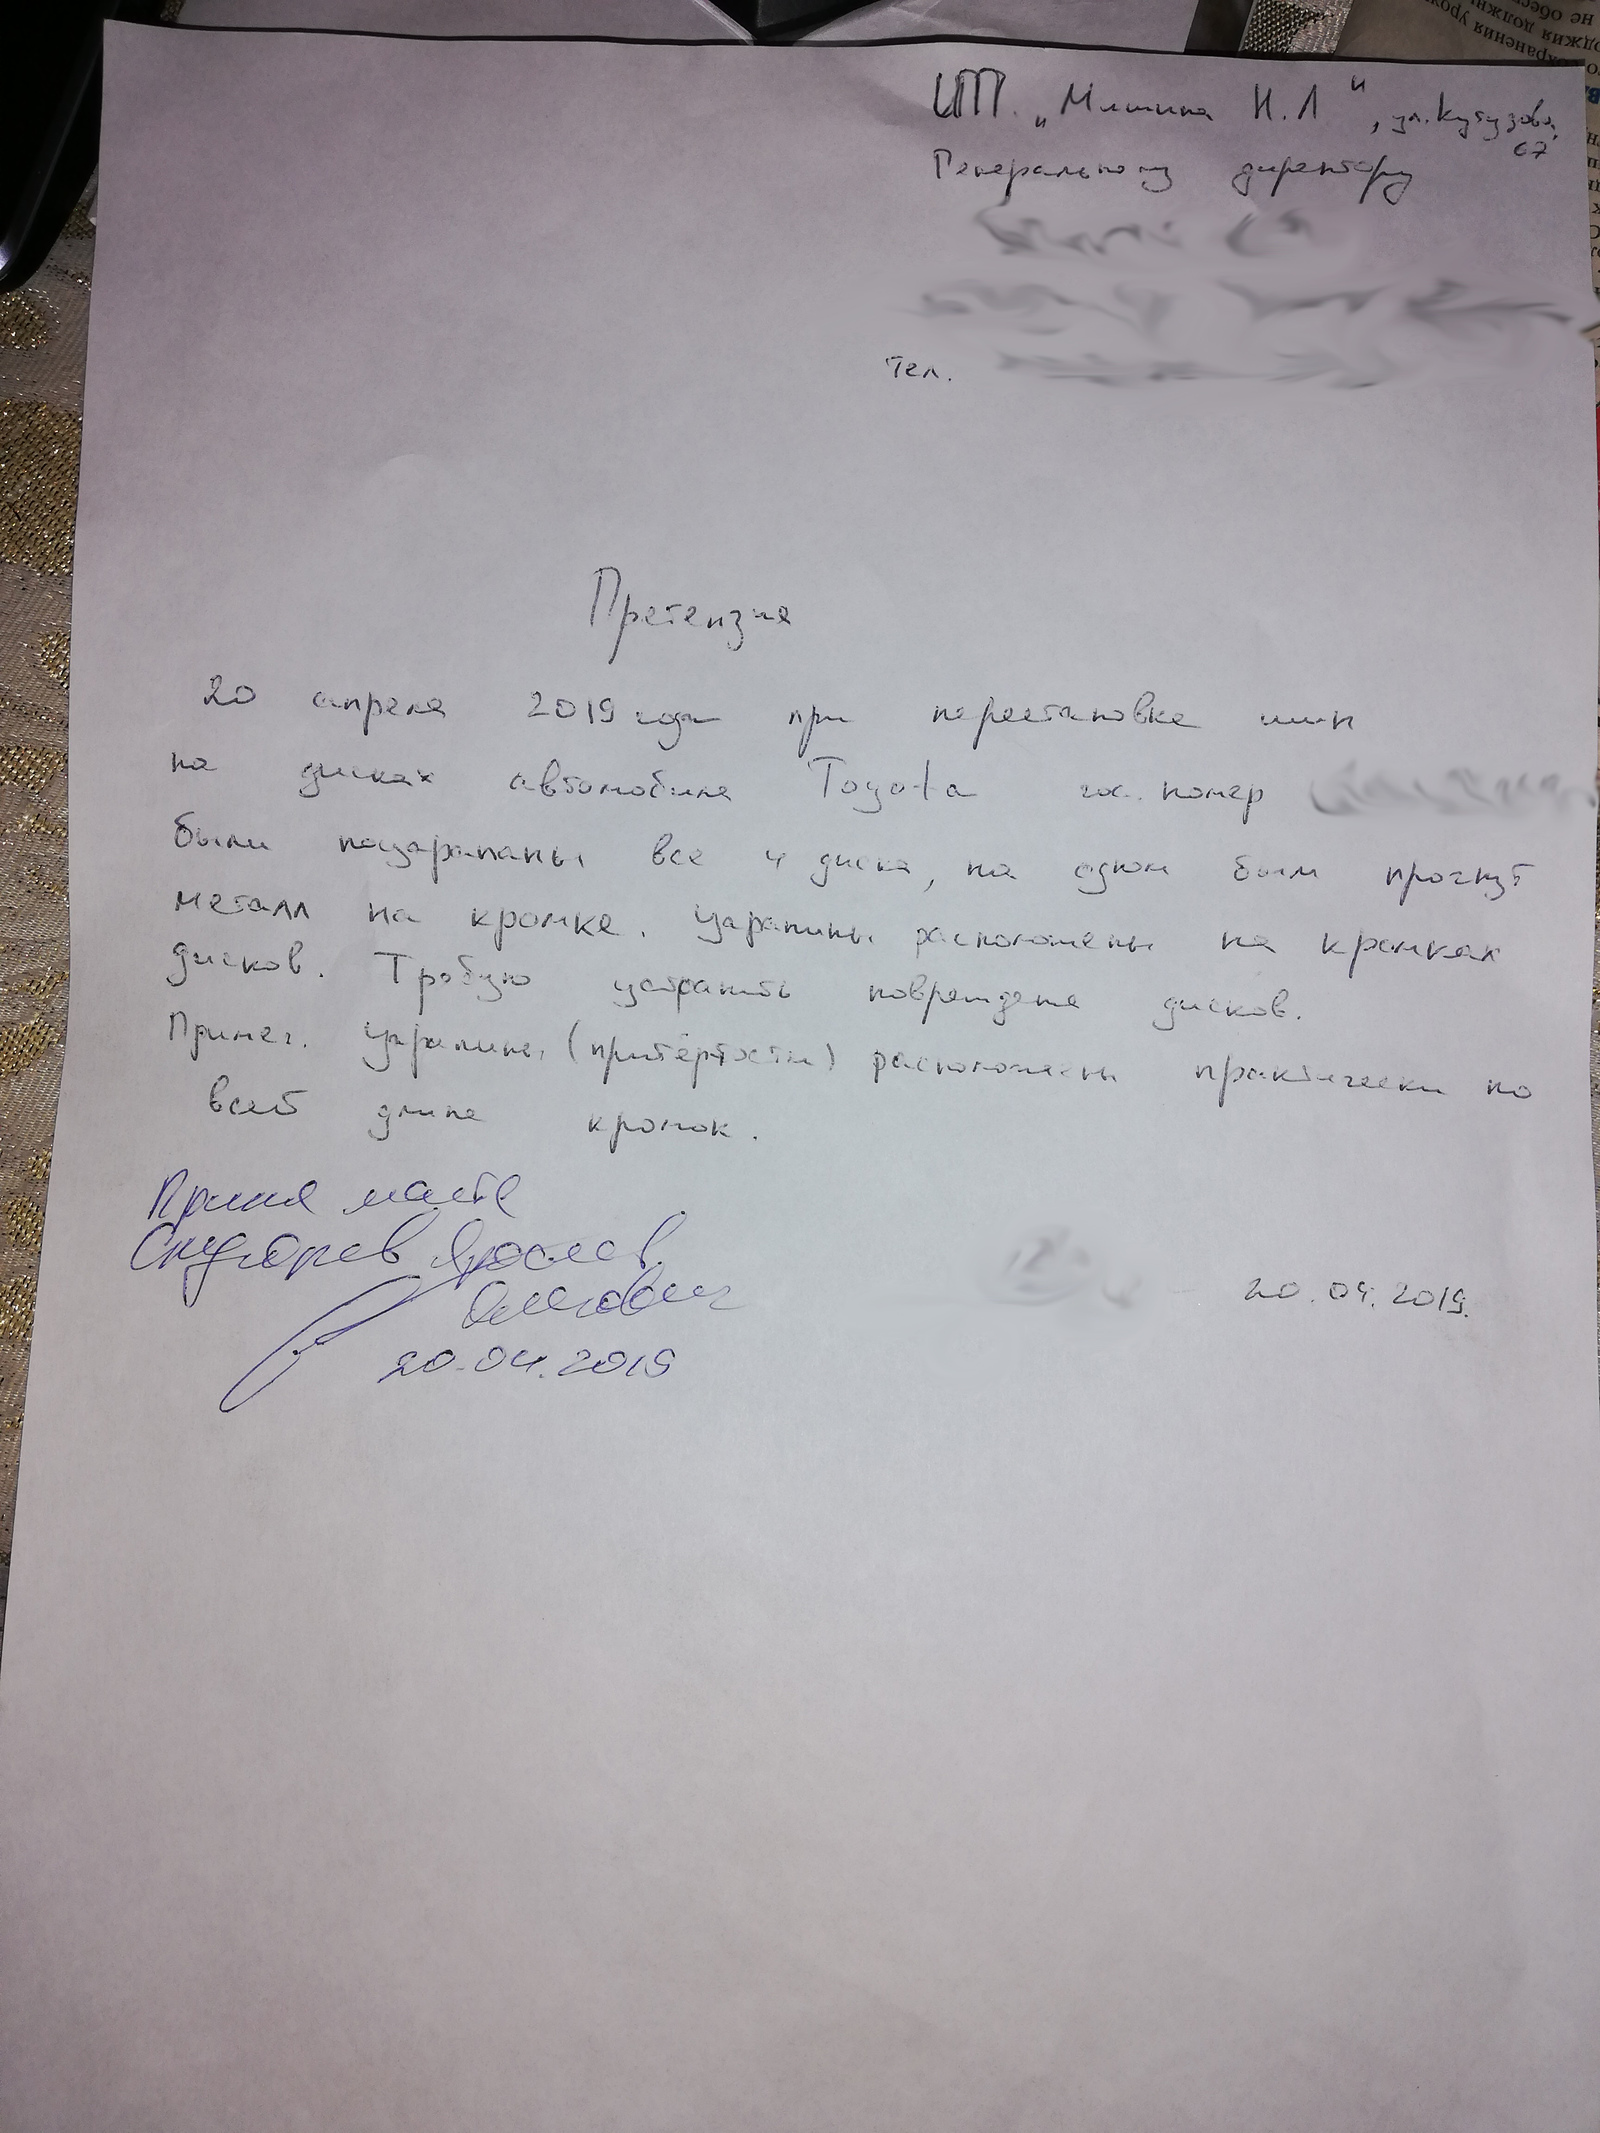 ИП. „Мишина Н.Л", ул. Кутузова, 67
Генеральному директору
тел.
Претензия
20 апреля 2019 года при перестановке шин
на дисках автомобиля Toyota гос. номер
были поцарапаны все 4 диска, на одном был прогнут
металл на кромке. Царапины расположены на кромках
дисков. Требую устранить повреждения дисков.
Примеч. Царапины (притёртости) расположены практически по
всей длине кромок.
Принял
Ярослав
Олегович
20.04.2019
20.04.2019.